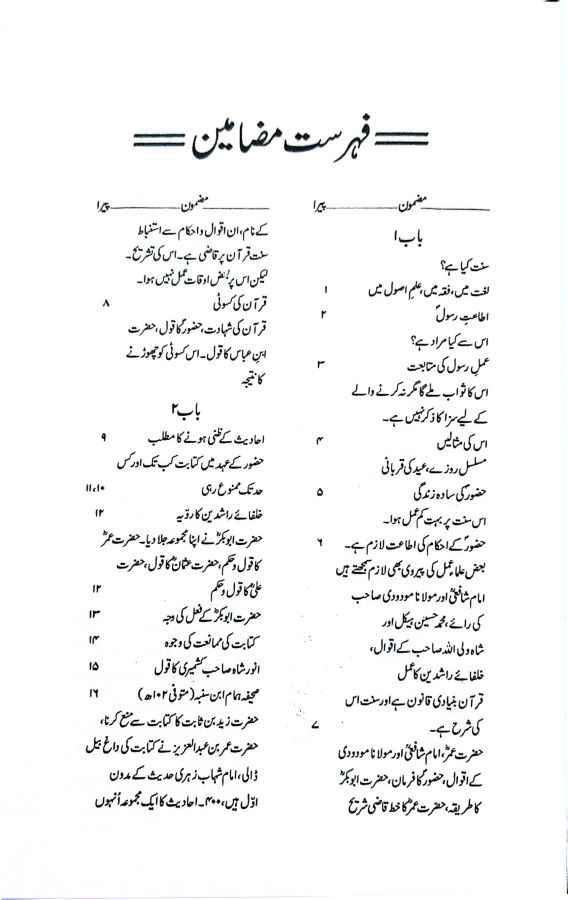 فہرست مضامین
مضمون پیرا
باب ۱
سنت کیا ہے؟
لغت میں، فقہ میں، علم اصول میں ۱
اطاعتِ رسولؐ ۲
اس سے کیا مراد ہے؟
عملِ رسول کی متابعت ۳
اس کا ثواب ملے گا مگر نہ کرنے والے
کے لیے سزا کا ذکر نہیں ہے۔
اس کی مثالیں ۴
مسلسل روزے، عید کی قربانی
حضورؐ کی سادہ زندگی ۵
اس سنت پر بہت کم عمل ہوا۔
حضورؐ کے احکام کی اطاعت لازم ہے۔ ۶
بعض علما عمل کی پیروی بھی لازم سمجھتے ہیں
امام شافعیؒ اور مولانا مودودی صاحب
کی رائے، محمد حسین ہیکل اور
شاہ ولی اللہ صاحب کے اقوال،
خلفائے راشدین کا عمل
قرآن بنیادی قانون ہے اور سنت اس
کی شرح ہے۔ ۷
حضرت عمرؓ، امام شافعیؒ اور مولانا مودودی
کے اقوال، حضورؐ کا فرمان، حضرت ابوبکرؓ
کا طریقہ، حضرت عمرؓ کا خط قاضی شریح
مضمون پیرا
کے نام، ان اقوال و احکام سے استنباط
سنت قرآن پر قاضی ہے۔ اس کی تشریح۔
لیکن اس پر بعض اوقات عمل نہیں ہوا۔
قرآن کی کسوٹی ۸
قرآن کی شہادت، حضورؐ کا قول، حضرت
ابن عباس کا قول۔ اس کسوٹی کو چھوڑنے
کا نتیجہ
باب ۲
احادیث کے ظنی ہونے کا مطلب ۹
حضور کے عہد میں کتابت کب تک اور کس
حد تک ممنوع رہی ۱۰،۱۱
خلفائے راشدین کا رویہ ۱۲
حضرت ابوبکرؓ نے اپنا مجموعہ جلا دیا۔ حضرت عمرؓ
کا قول و حکم، حضرت عثمانؓ کا قول، حضرت
علیؓ کا قول و حکم ۱۲
حضرت ابوبکرؓ کے فعل کی وجہ ۱۳
کتابت کی ممانعت کی وجوہ ۱۴
انور شاہ صاحب کشمیری کا قول ۱۵
صحیفہ ہمام ابن منبہ (متوفی ۱۰۲ھ) ۱۶
حضرت زید بن ثابت کا کتابت سے منع کرنا،
حضرت عمر بن عبدالعزیز نے کتابت کی داغ بیل
ڈالی، امام شہاب زہری حدیث کے مدون
اوّل ہیں، ۴۰۰۔ احادیث کا ایک مجموعہ اُنہوں